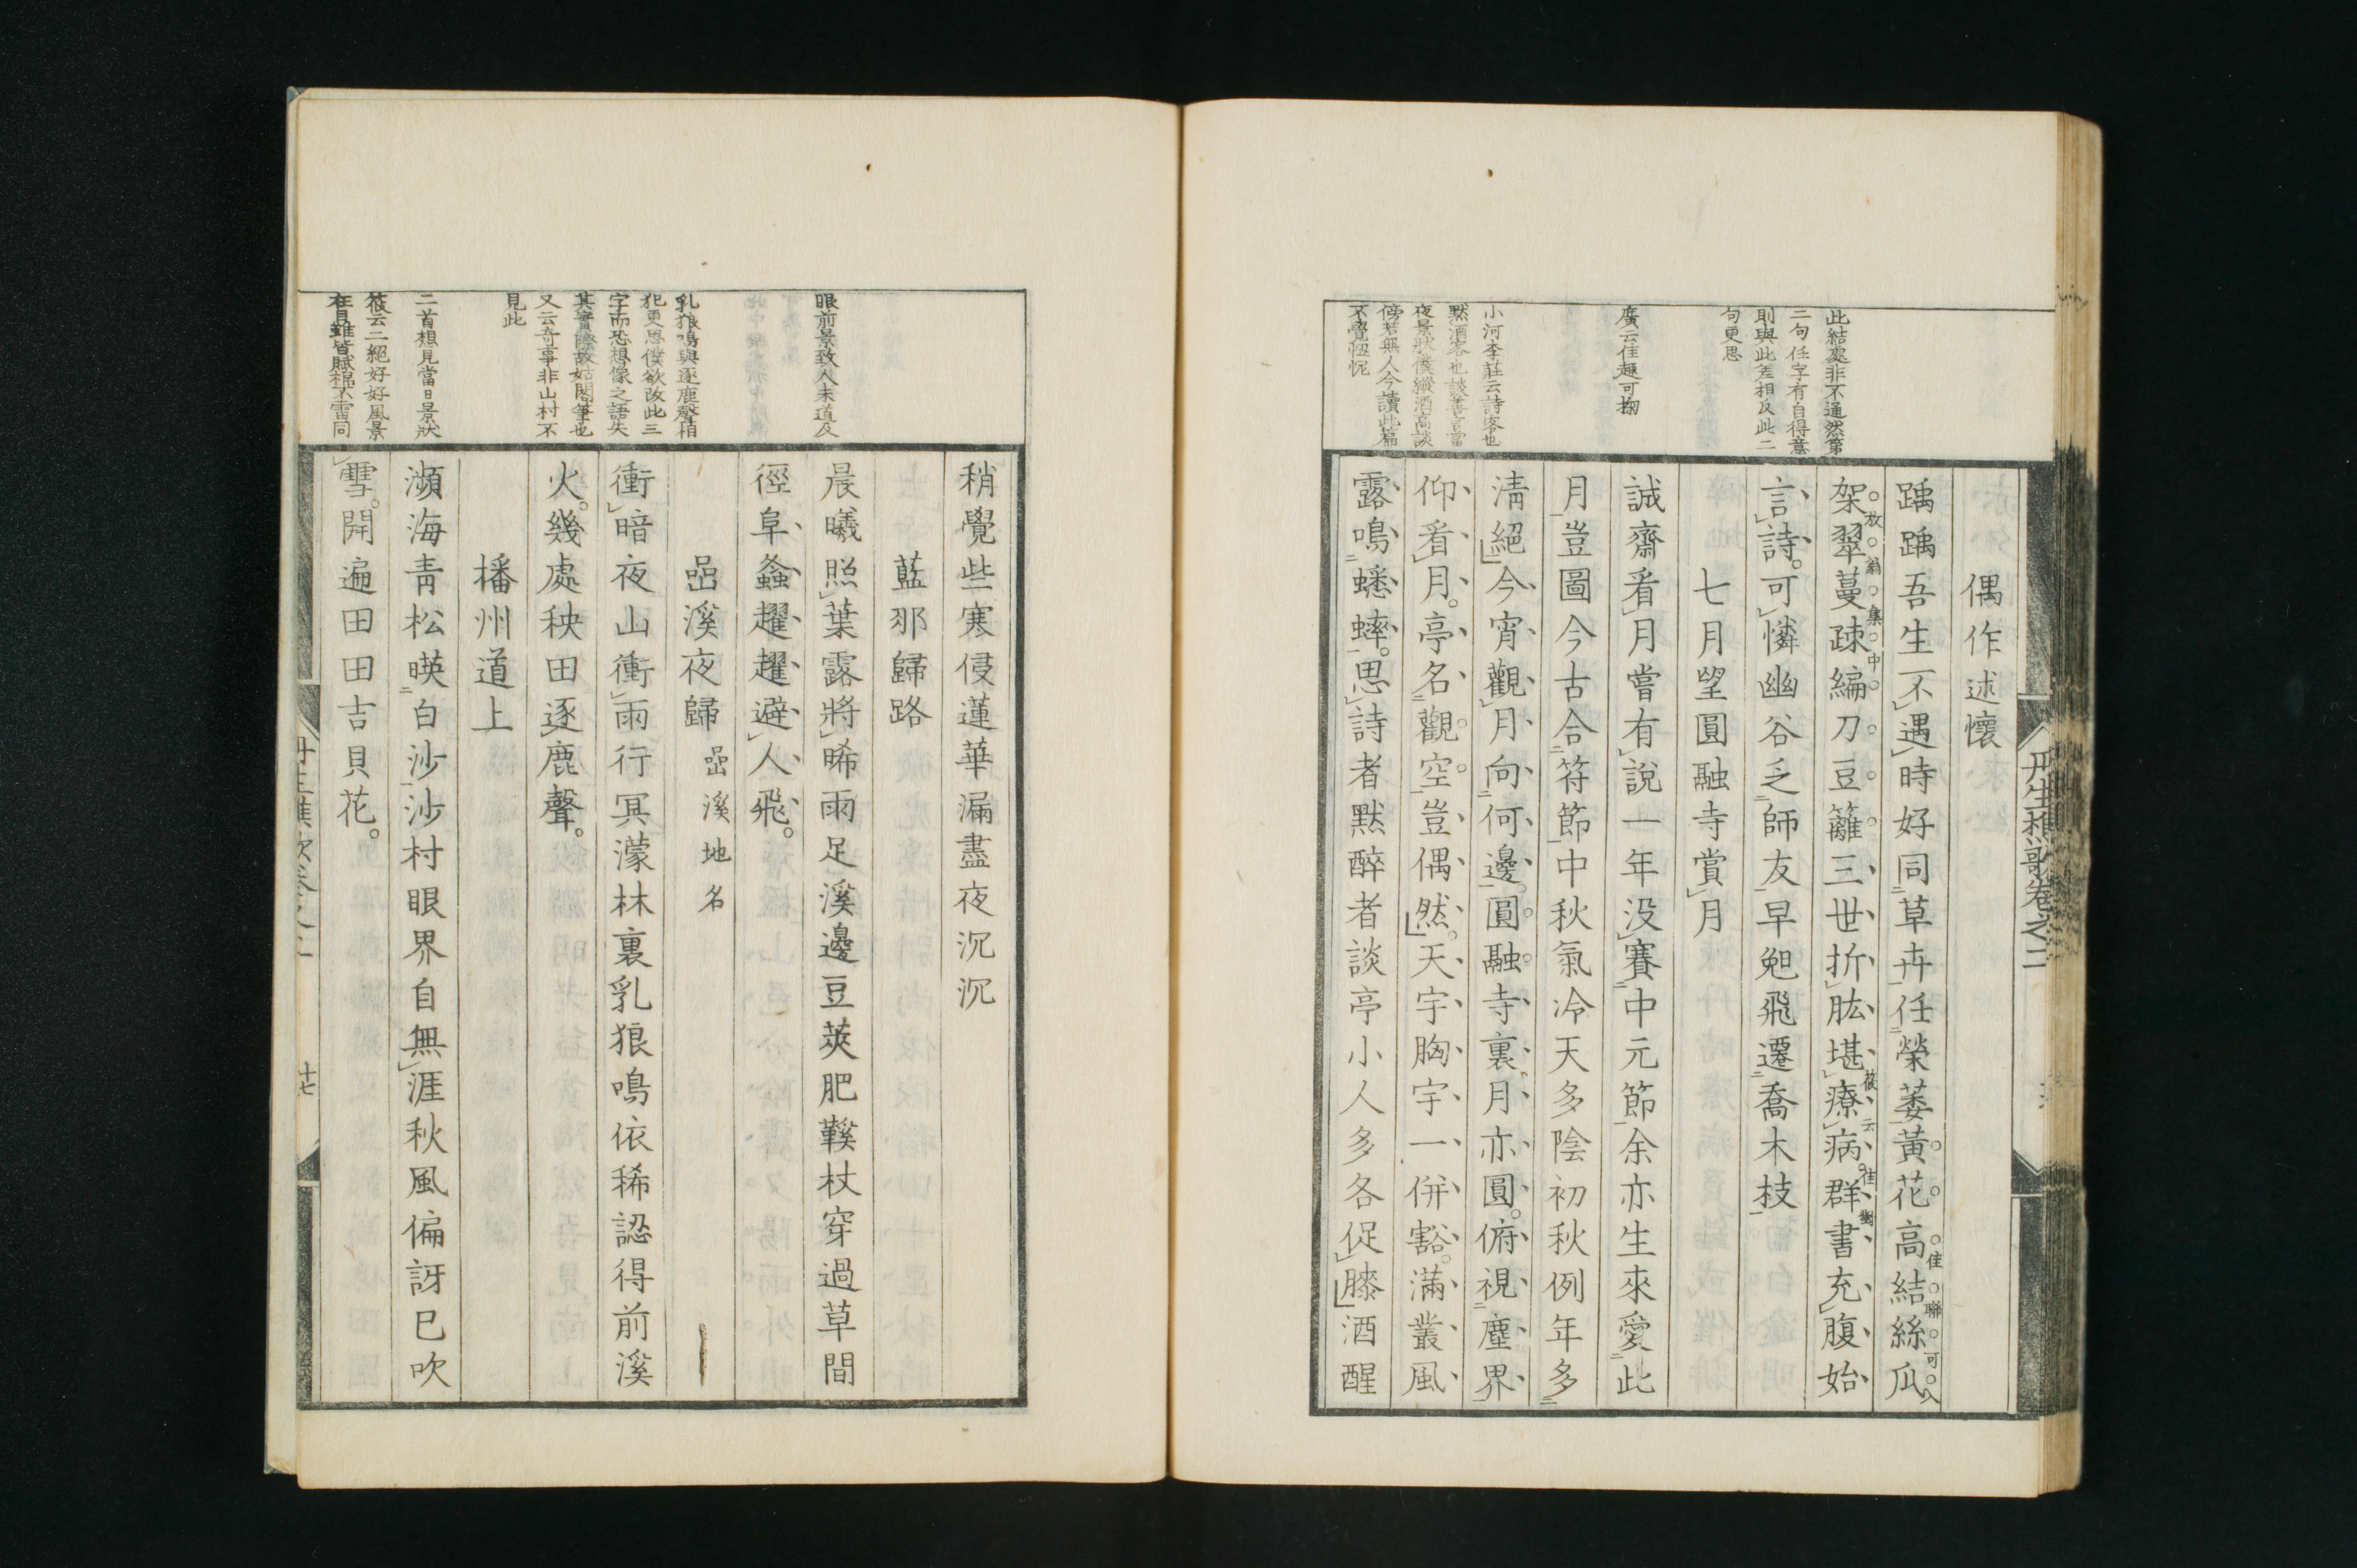 丹生樵歌卷之二
偶作述懷
踽踽吾生不遇時好同草卉任榮萎黃花高結絲瓜
架翠蔓疎編刀豆籬三世折肱堪療病群書充腹始
言詩可憐幽谷乏師友早晚飛遷喬木枝
七月望圓融寺賞月
誠齋看月嘗有說一年没賽中元節余亦生來愛此
月豈圖今古合符節中秋氣冷天多陰初秋例年多
清絕今宵觀月向何邊圓融寺裏月亦圓俯視塵界
仰看月亭名觀空豈偶然天宇胸宇一併豁滿叢風
露鳴蟋蟀思詩者默醉者談亭小人多各促膝酒醒
佳聯可入
放翁集中
筱云佳對
此結處非不通然第
二句任字有自得意
則與此差相反此二
句更思
廣云佳趣可掬
小河李莊云詩客也
默酒客也談善言當
夜景狀僕縱酒高談
傍若無人今讀此篇
不覺忸怩
稍覺些寒侵蓮華漏盡夜沉沉
藍那歸路
晨曦照葉露將晞雨足溪邊豆莢肥鞵杖穿過草間
徑阜螽趯趯避人飛
喦溪夜歸 喦溪地名
衝暗夜山衝雨行冥濛林裏乳狼鳴依稀認得前溪
火幾處秧田逐鹿聲
播州道上
瀕海青松暎白沙沙村眼界自無涯秋風偏訝巳吹
雪開遍田田吉貝花
十七
眼前景致人未道及
乳狼鳴與逐鹿聲相
犯更思僕欲改此三
字而恐想像之語失
其實際故姑閣筆也
又云奇事非山村不
見此
二首想見當日景狀
筱云二絕好好風景
在目雖皆賦棉不雷同